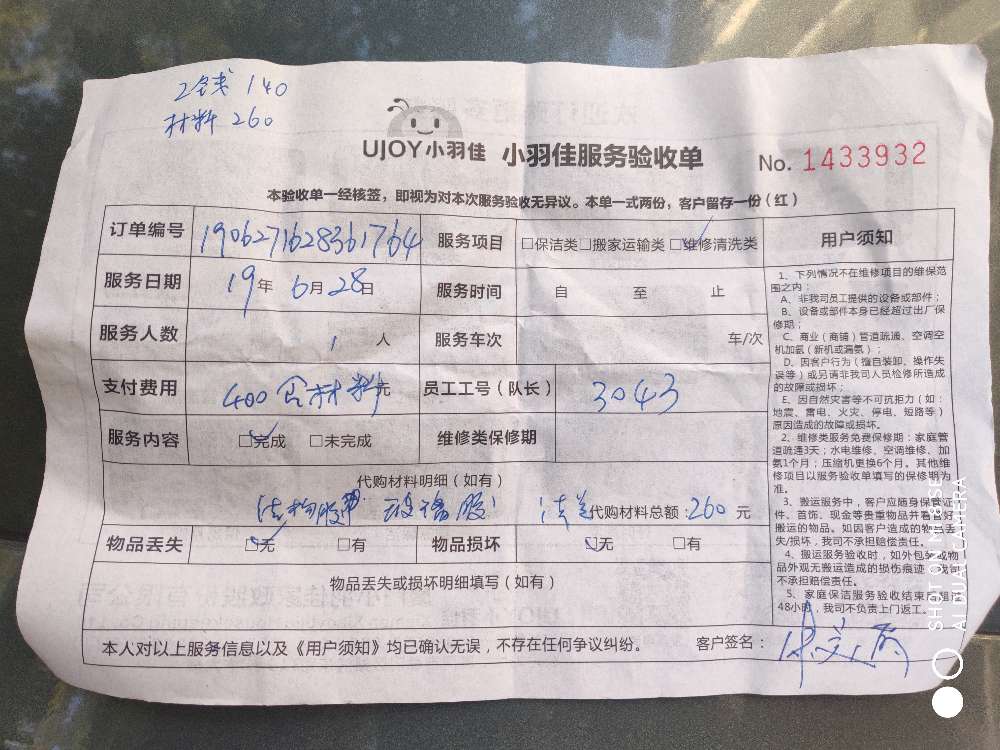 2钱 140
材料 260
UJOY小羽佳 小羽佳服务验收单 No. 1433932
本验收单一经核签，即视为对本次服务验收无异议。本单一式两份，客户留存一份（红）
订单编号 1906271628361764 服务项目 □保洁类□搬家运输类□维修清洗类
服务日期 19年6月28日 服务时间 自 至 止
服务人数 1 人 服务车次 车/次
支付费用 400含材料元 员工工号（队长） 3043
服务内容 □完成 □未完成 维修类保修期
代购材料明细（如有）
玻璃胶 代购材料总额：260元
物品丢失 □无 □有 物品损坏 □无 □有
物品丢失或损坏明细填写（如有）
本人对以上服务信息以及《用户须知》均已确认无误，不存在任何争议纠纷。 客户签名：
用户须知
1、下列情况不在维修项目的维保范
围之内：
A、非我司员工提供的设备或部件；
B、设备或部件本身已经超过出厂保
修期；
C、商业（商铺）管道疏通、空调空
机加氨（新机或漏氨）；
D、因客户行为（擅自装卸、操作失
误等）或另请非我司人员检修所造成
的故障或损坏；
E、因自然灾害等不可抗拒力（如：
地震、雷电、火灾、停电、短路等）
原因造成的故障或损坏。
2、维修类服务免费保修期：家庭管
道疏通3天；水电维修、空调维修、加
氨1个月；压缩机更换6个月。其他维
修项目以服务验收单填写的保修期为
准。
3、搬运服务中，客户应随身保管证
件、首饰、现金等贵重物品并看管好
搬运的物品。如因客户造成的物品丢
失/损坏，我司不承担赔偿责任。
4、搬运服务验收时，如外包装或物
品外观无搬运造成的损伤痕迹，我司
不承担赔偿责任。
5、家庭保洁服务验收结束后超过
48小时，我司不负责上门返工。
SHOT ON MI 8 SE
AI DUAL CAMERA